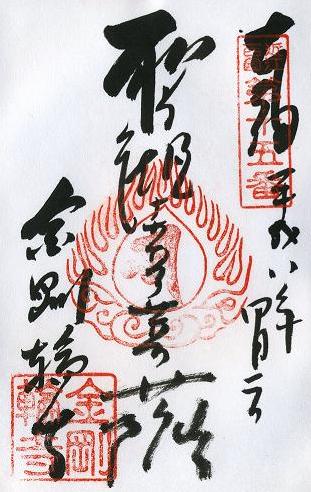 奉拝 平成八年
第十五番
聖観世音菩薩
金剛輪寺
金剛
輪寺